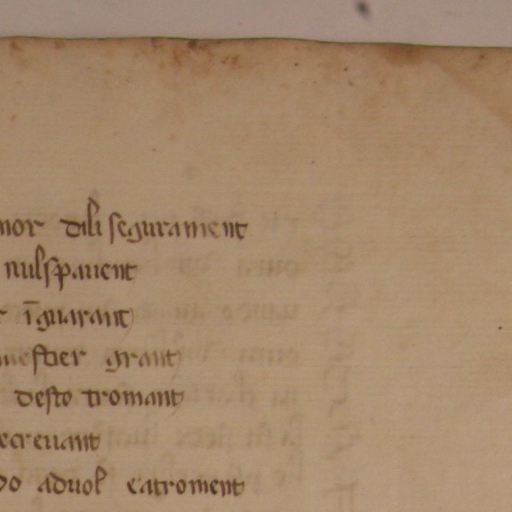 mor dili segurament
nulspauent
r īguarant
mestier grant
desto tromant
ecreuant
do aduol eatroment